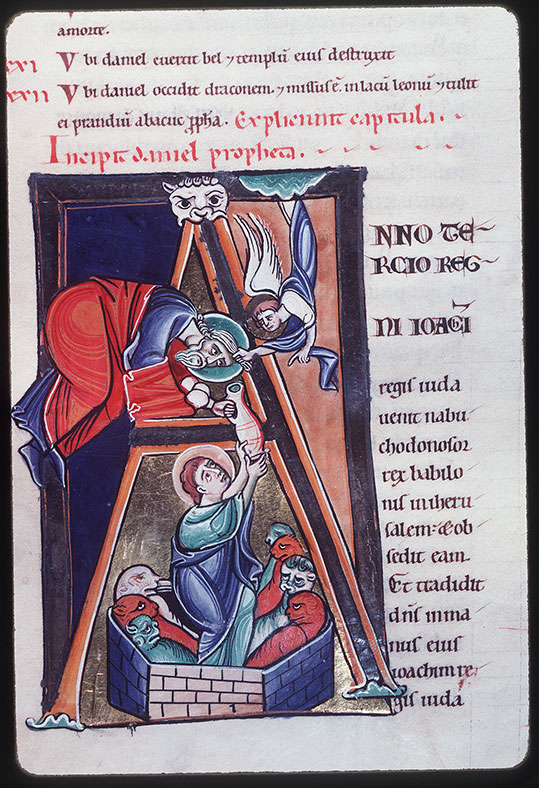 amorte.
xxi Vbi daniel euertit bel ⁊ templū eius destruxit
xxii Vbi daniel occidit draconem. ⁊ missus ē. in lacū leonū ⁊ tulit
ei prandiū abacuc ꝓpha. Expliciunt capitula.
Incipit daniel propheta.
A
NNO TE-
RCIO REG-
NI IOACĪ
regis iuda
uenit nabu
chodonosor
rex babilo
nis in iheru
salem: & ob
sedit eam.
Et tradidit
dn̄s in ma
nus eius
ioachim re-
gis iuda